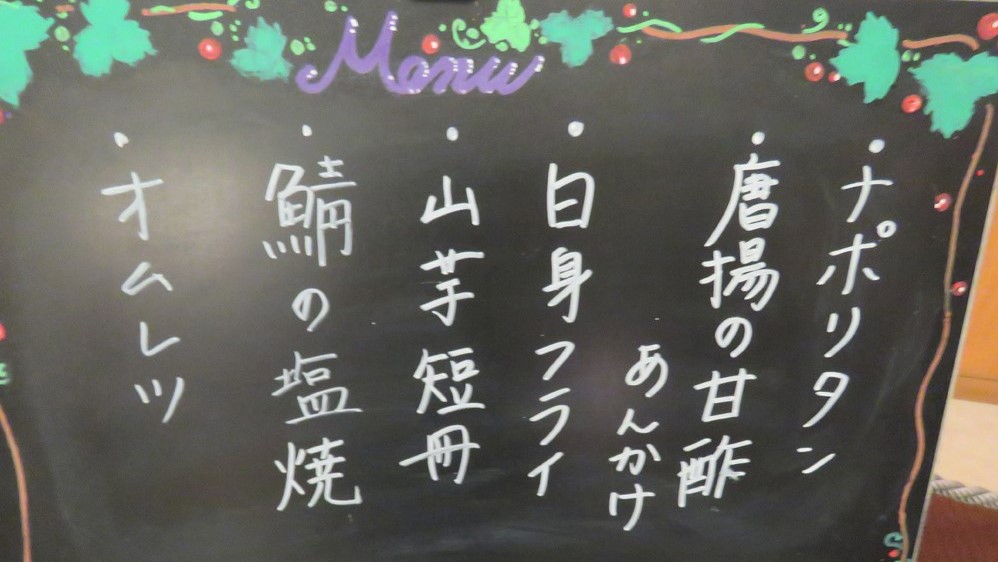 Menu
・ナポリタン
・唐揚の甘酢
あんかけ
・白身フライ
・山芋短冊
・鯖の塩焼
・オムレツ